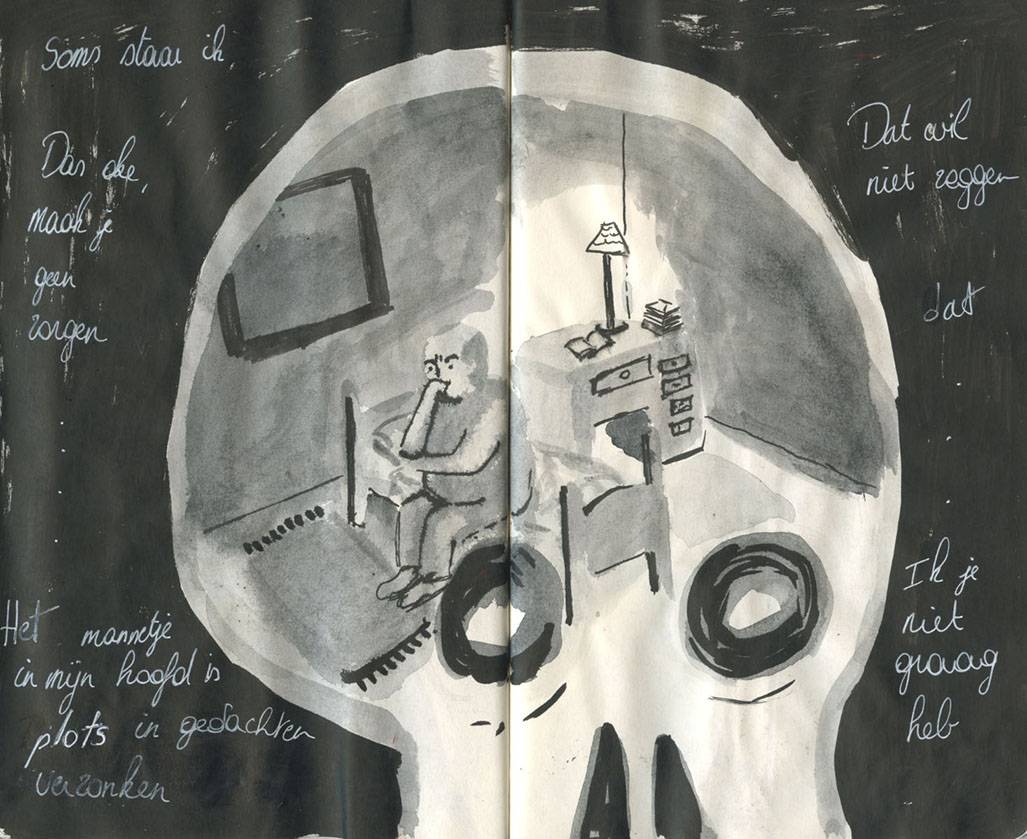 Soms staar ik
Das oke,
maak je
geen
zorgen
Het mannetje
in mijn hoofd is
plots in gedachten
verzonken
Dat wil
niet zeggen
dat
Ik je
niet
graag
heb